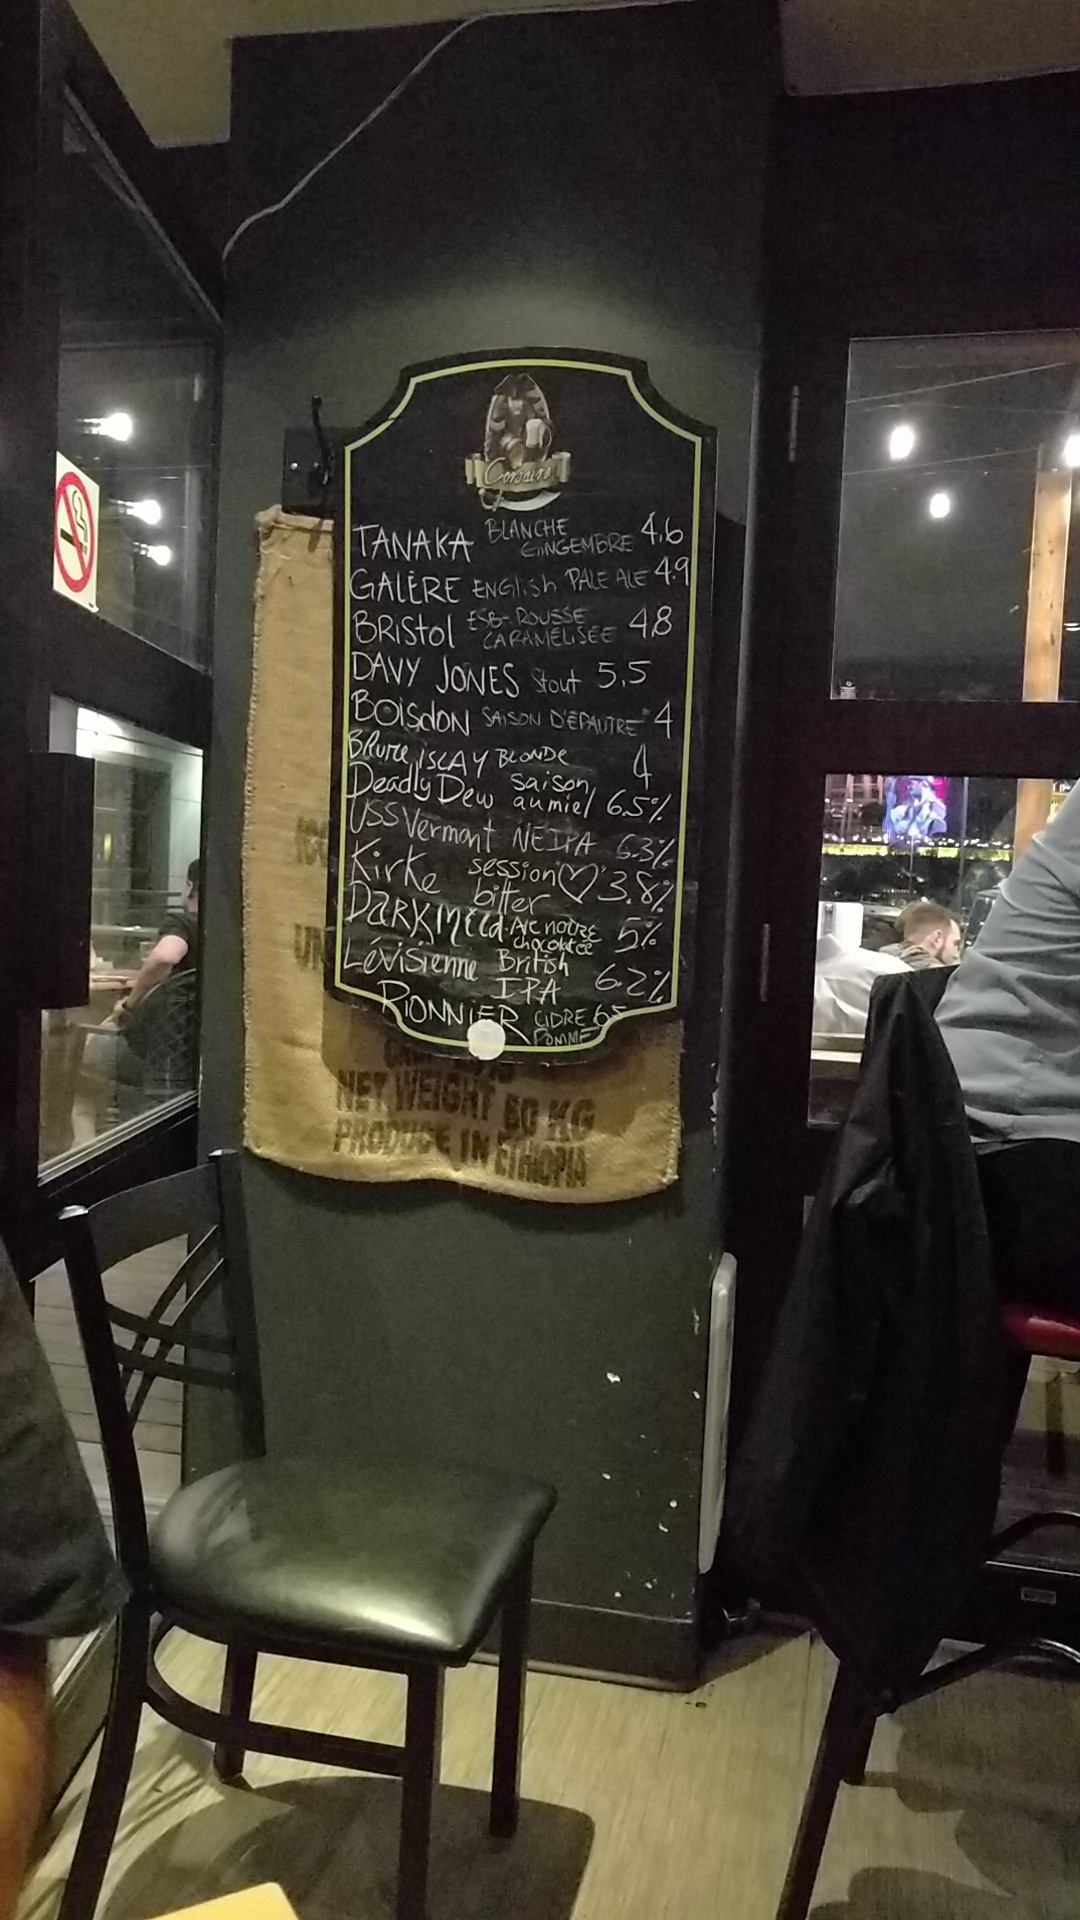 Corsaire
TANAKA BLANCHE GINGEMBRE 4.6
GALÈRE ENGLISH PALE ALE 4.9
BRISTOL ESB-ROUSSE CARAMÉLISÉE 4.8
DAVY JONES Stout 5.5
BOISdON SAISON D'ÉPAUTRE 4
iSLAY BLONDE 4
Deadly Dew saison au miel 6.5%
USS Vermont NEIPA 6.3%
Kirke session bitter ♡ 3.8%
DARK Mild Ale noire chocolatée 5%
Lévisienne British IPA 6.2%
PIONNIER CIDRE POMME 6.5
NET WEIGHT 60 KG
PRODUCE IN ETHIOPIA